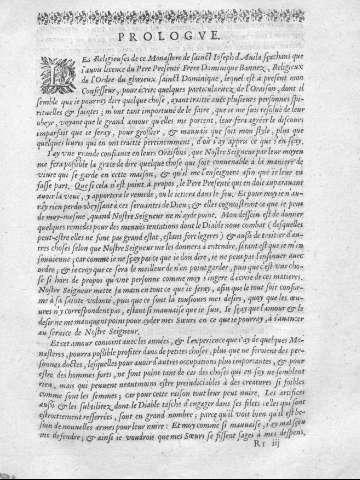 PROLOGVE.
Es Religieuses de ce Monastere de sainct Ioseph d'Auila sçachans que
i'auoi licence du Pere Presenté Frere Dominique Bannez, Religieux
de l'Ordre du glorieux sainct Dominique, lequel est à present mon
Confesseur, pour écrire quelques particularitez de l'Oraison, dont il
semble que ie pourrai dire quelque chose, ayant traitté auec plusieurs personnes spi-
rituelles & sainctes; m'ont tant importuné de le faire, que ie me suis resoluë de leur
obeyr, voyant que le grand amour qu'elles me portent, leur fera agréer le discours
imparfait que ie feray, pour grossier, & mauuais que soit mon style, plus que
quelques liures qui en ont traitté pertinemment, d'où i'ay appris ce que i'en sçay.
I'ay vne grande confiance en leurs Oraisons, que Nostre Seigneur par leur moyen
me fera possible la grace de dire quelque chose qui soit conuenable à la maniere de
viure qui se garde en cette maison, & qu'il m'enseignera afin que ie leur en
fasse part. Que si cela n'est point à propos, le Pere Presenté qui en doit auparauant
auoir la veuë, y apportera le remede, ou le iettera dans le feu. Et pour moy ie n'au-
ray rien perdu obeyssant à ces seruantes de Dieu; & elles cognoistront ce que ie peux
de moy-mesme, quand Nostre Seigneur ne m'ayde point. Mon dessein est de donner
quelques remedes pour des menuës tentations dont le Diable nous combat (desquelles
peut-estre elles ne font pas grand estat, estant fort legeres) & aussi de traitter d'au-
tres choses selon que Nostre Seigneur me les donnera à entendre, si tant est que ie m'en
souuienne; car comme ie ne sçay pas ce que ie dois dire, ie ne peux pas l'enoncer auec
ordre; & ie croy que ce sera le meilleur de n'en point garder, puis que c'est vne cho-
se si hors de propos qu'vne personne comme moy s'ingere d'écrire de ces matieres.
Nostre Seigneur mette sa main en tout ce que ie feray, afin que le tout soit confor-
me à sa saincte volonté, puis que ce sont là tousiours mes desirs, quoy que les œuu-
res n'y correspondent pas, estant si mauuaise que ie suis. Ie sçay que l'amour & le
desir ne me manquent point pour ayder mes Sœurs en ce que ie pourray, à s'auancer
au seruice de Nostre Seigneur.
Et cet amour conioint auec les années, & l'experience que i'ay de quelques Mo-
nasteres, pourra possible profiter dans de petites choses, plus que ne feroient des per-
sonnes doctes, lesquelles pour auoir d'autres occupations plus importantes, & pour
estre des hommes forts, ne font point tant de cas des choses qui en soy ne semblent
rien, mais qui peuuent neantmoins estre preiudiciables à des creatures si foibles
comme sont les femmes; car pour cette raison tout leur peut nuire. Les artifices
aussi & les subtilitez dont le Diable tasche d'engager dans ses filets celles qui sont
estroittement resserrées, sont en grand nombre; parce qu'il voit bien qu'il est be-
soin de nouuelles armes pour leur nuire: Et moy comme si mauuaise, i'ay mal sçeu
me defendre; & ainsi ie voudrois que mes Sœurs se fissent sages à mes despens,
Rr iij